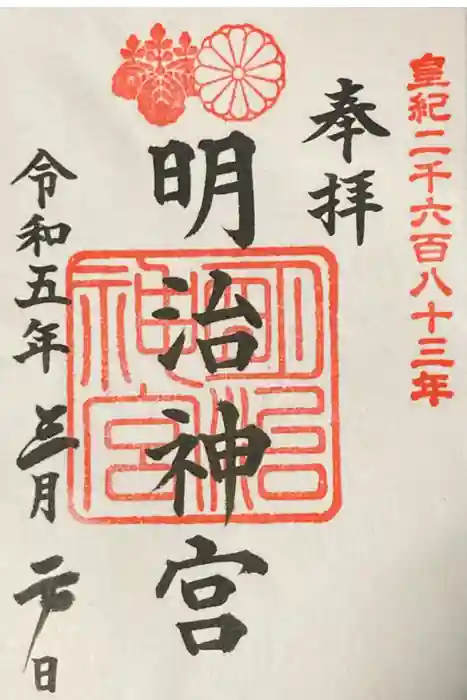 皇紀二千六百八十三年
奉拝
明治神宮
明治神宮
令和五年三月二日